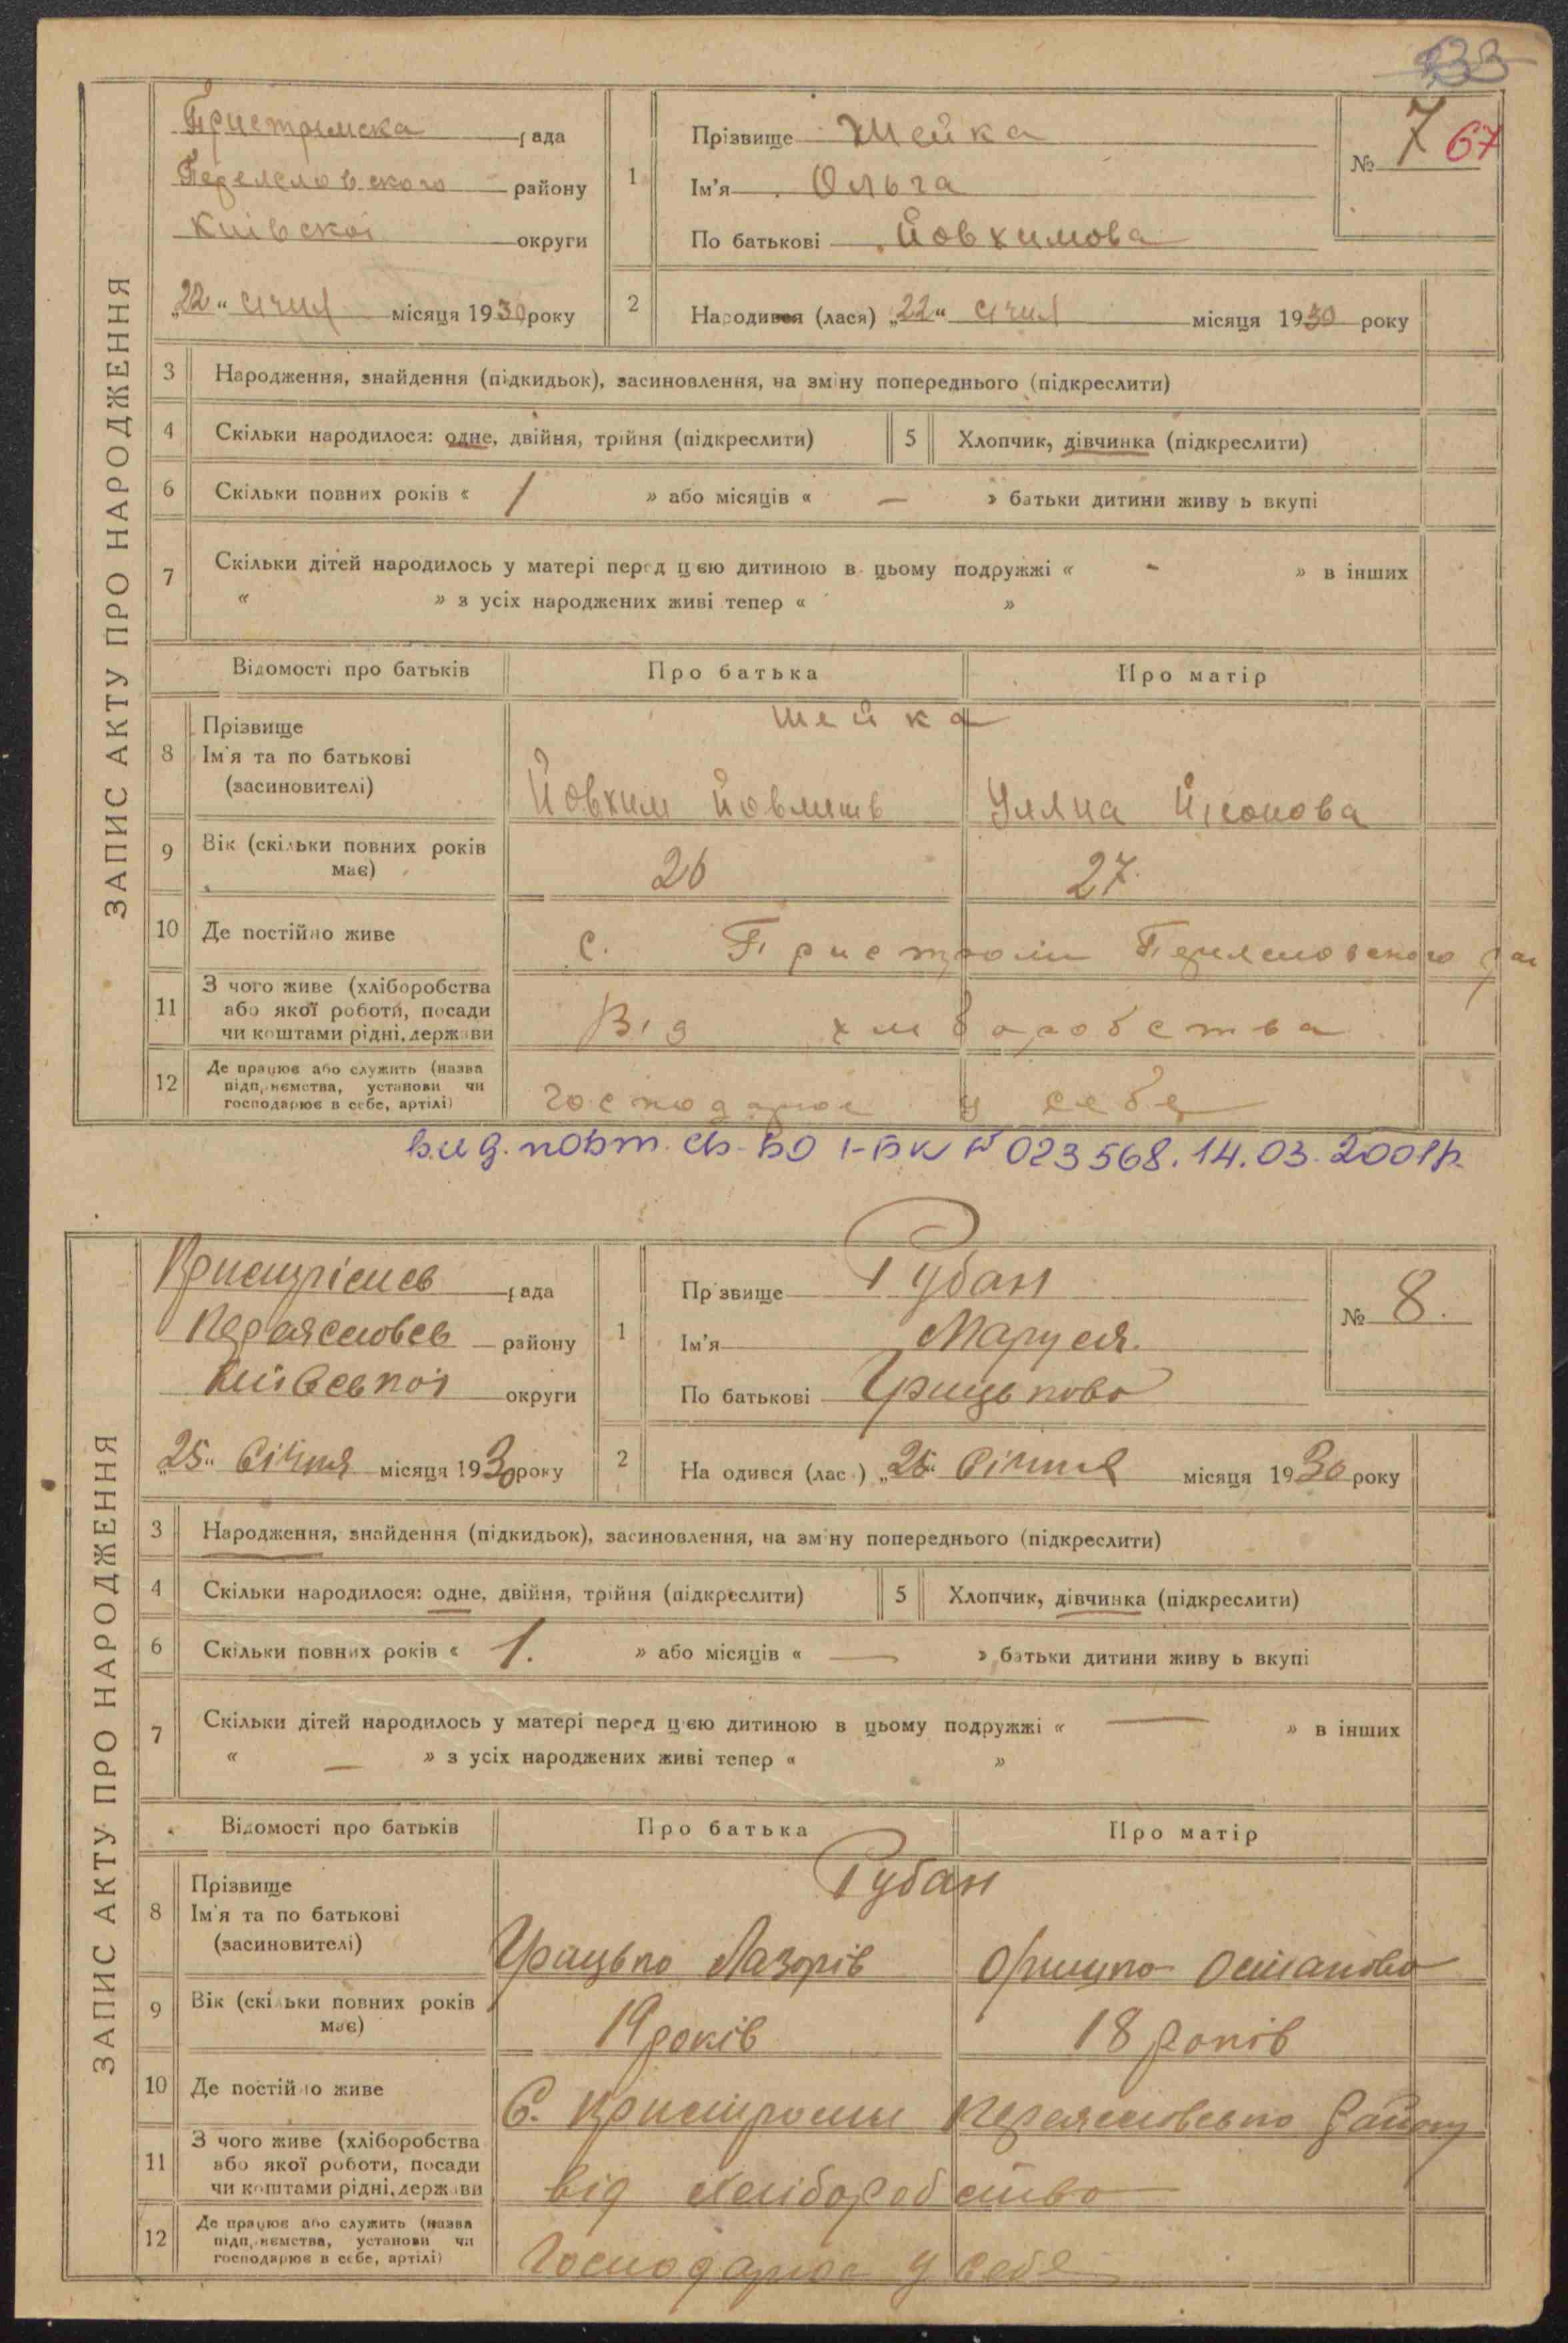 33
ЗАПИС АКТУ ПРО НАРОДЖЕННЯ
Пристромска рада
району
Київскої округи
„22“ січня місяця 1930 року
1
Прізвище Шейка
Ім'я Ольга
По батькові Йовхимова
№ 7 67
2
Народився (лася) „22“ січня місяця 1930 року
3 Народження, знайдення (підкидьок), засиновлення, на зміну попереднього (підкреслити)
4 Скільки народилося: одне, двійня, трійня (підкреслити) 5 Хлопчик, дівчинка (підкреслити)
6 Скільки повних років « 1 » або місяців « — » батьки дитини живуть вкупі
7 Скільки дітей народилось у матері перед цією дитиною в цьому подружжі « - » в інших
« » з усіх народжених живі тепер « »
Відомості про батьків Про батька Про матір
Шейка
8 Прізвище
Ім'я та по батькові
(засиновителі)
Йовхим Уляна
9 Вік (скільки повних років має) 26 27
10 Де постійно живе с. Пристроми
11 З чого живе (хліборобства
або якої роботи, посади
чи коштами рідні, держави
Від хліборобства
12 Де працює або служить (назва
підприємства, установи чи
господарює в себе, артілі)
господарює у себе
вид. повт. св. БО 1-БК № 023568. 14.03.2001р.
ЗАПИС АКТУ ПРО НАРОДЖЕННЯ
рада
району
округи
„25“ Січня місяця 1930 року
1
Прізвище Рубан
Ім'я Маруся
По батькові Грицькова
№ 8.
2
Народився (лась) „25“ Січня місяця 1930 року
3 Народження, знайдення (підкидьок), засиновлення, на зміну попереднього (підкреслити)
4 Скільки народилося: одне, двійня, трійня (підкреслити) 5 Хлопчик, дівчинка (підкреслити)
6 Скільки повних років « 1. » або місяців « — » батьки дитини живуть вкупі
7 Скільки дітей народилось у матері перед цією дитиною в цьому подружжі « — » в інших
« — » з усіх народжених живі тепер « »
Відомості про батьків Про батька Про матір
Рубан
8 Прізвище
Ім'я та по батькові
(засиновителі)
Грицько Лазорів Остапова
9 Вік (скільки повних років має) 19 років 18 років
10 Де постійно живе С. Пристроми району
11 З чого живе (хліборобства
або якої роботи, посади
чи коштами рідні, держави
від хліборобства
12 Де працює або служить (назва
підприємства, установи чи
господарює в себе, артілі)
Господарює у себе